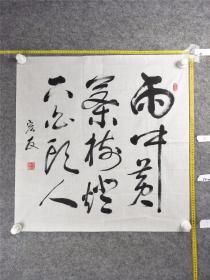 雨中黄
叶树灯
下白头人
宏友